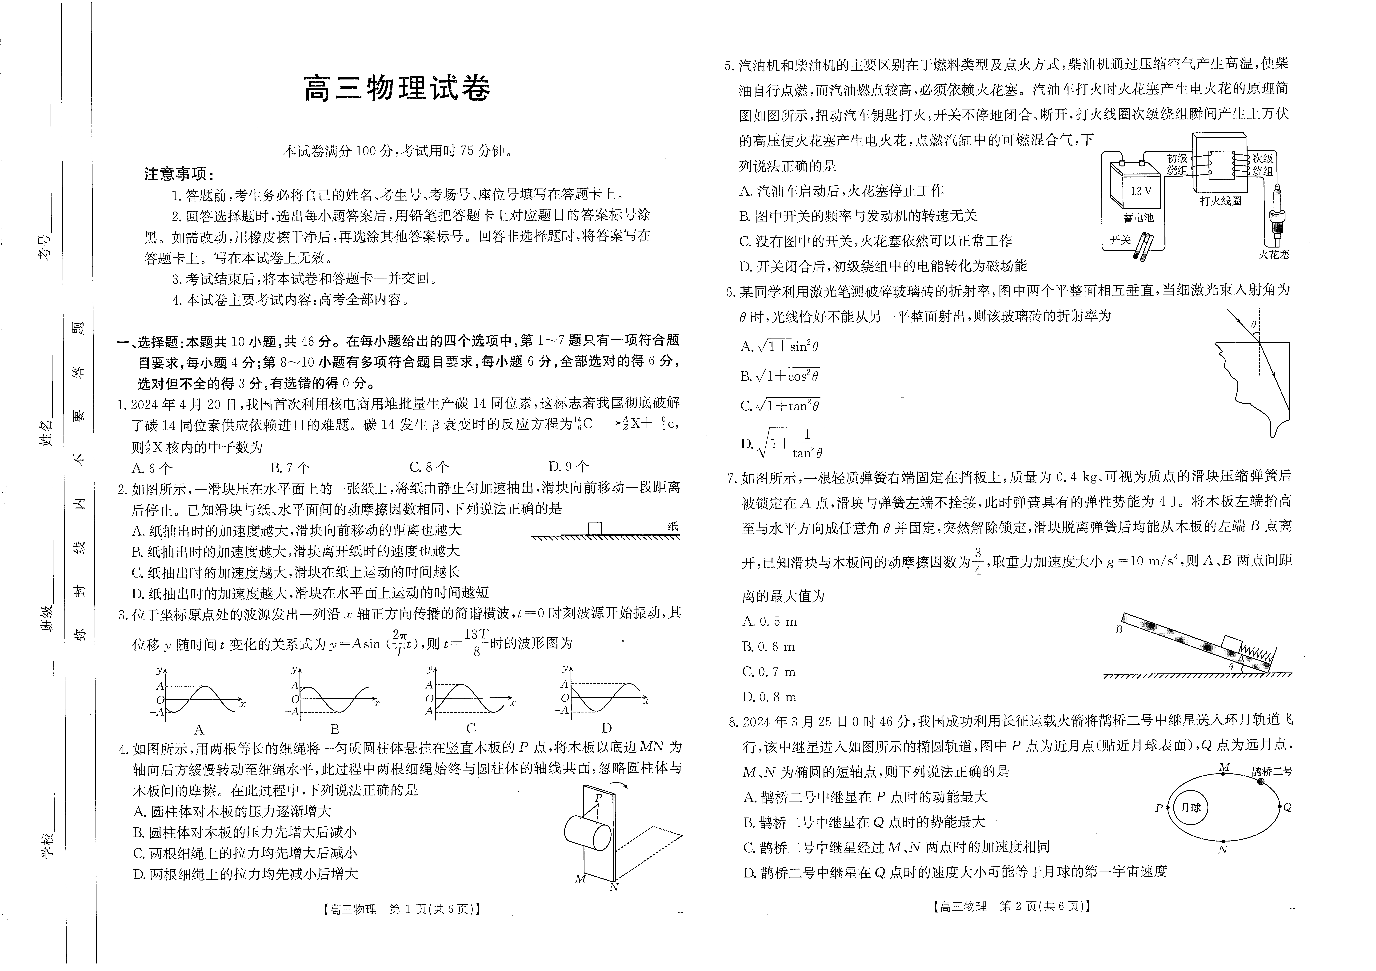 高三物理试卷
本试卷满分100分,考试用时75分钟。
注意事项:
1.答题前,考生务必将自己的姓名、考生号、考场号、座位号填写在答题卡上。
2.回答选择题时,选出每小题答案后,用铅笔把答题卡上对应题目的答案标号涂
黑。如需改动,用橡皮擦干净后,再选涂其他答案标号。回答非选择题时,将答案写在
答题卡上。写在本试卷上无效。
3.考试结束后,将本试卷和答题卡一并交回。
4.本试卷主要考试内容:高考全部内容。
一、选择题:本题共10小题,共46分。在每小题给出的四个选项中,第1~7题只有一项符合题
目要求,每小题4分;第8~10小题有多项符合题目要求,每小题6分,全部选对的得6分,
选对但不全的得3分,有选错的得0分。
1.2024年4月20日,我国首次利用核电商用堆批量生产碳14同位素,这标志着我国彻底破解
了碳14同位素供应依赖进口的难题。碳14发生β衰变时的反应方程为¹⁴₆C→ᴬzX+⁰₋₁e,
则ᴬzX核内的中子数为
A.6个 B.7个 C.8个 D.9个
2.如图所示,一滑块压在水平面上的一张纸上,将纸由静止匀加速抽出,滑块向前移动一段距离
后停止。已知滑块与纸、水平面间的动摩擦因数相同,下列说法正确的是
A.纸抽出时的加速度越大,滑块向前移动的距离也越大
B.纸抽出时的加速度越大,滑块离开纸时的速度也越大
C.纸抽出时的加速度越大,滑块在纸上运动的时间越长
D.纸抽出时的加速度越大,滑块在水平面上运动的时间越短
纸
3.位于坐标原点处的波源发出一列沿x轴正方向传播的简谐横波,t=0时刻波源开始振动,其
位移y随时间t变化的关系式为y=Asin(2π/T t),则t=13T/8时的波形图为
y A O -A x A
y A O -A x B
y A O A x C
y A O -A x D
4.如图所示,用两根等长的细绳将一匀质圆柱体悬挂在竖直木板的P点,将木板以底边MN为
轴向后方缓慢转动至细绳水平,此过程中两根细绳始终与圆柱体的轴线共面,忽略圆柱体与
木板间的摩擦。在此过程中,下列说法正确的是
A.圆柱体对木板的压力逐渐增大
B.圆柱体对木板的压力先增大后减小
C.两根细绳上的拉力均先增大后减小
D.两根细绳上的拉力均先减小后增大
P
M N
【高三物理 第1页(共6页)】
5.汽油机和柴油机的主要区别在于燃料类型及点火方式,柴油机通过压缩空气产生高温,使柴
油自行点燃,而汽油燃点较高,必须依赖火花塞。汽油车打火时火花塞产生电火花的原理简
图如图所示,扭动汽车钥匙打火,开关不停地闭合、断开,打火线圈次级绕组瞬间产生上万伏
的高压使火花塞产生电火花,点燃汽缸中的可燃混合气,下
列说法正确的是
A.汽油车启动后,火花塞停止工作
B.图中开关的频率与发动机的转速无关
C.没有图中的开关,火花塞依然可以正常工作
D.开关闭合后,初级绕组中的电能转化为磁场能
初级绕组 次级绕组
12 V
打火线圈
蓄电池
开关
火花塞
6.某同学利用激光笔测破碎玻璃砖的折射率,图中两个平整面相互垂直,当细激光束入射角为
θ时,光线恰好不能从另一平整面射出,则该玻璃砖的折射率为
A.√(1+sin²θ)
B.√(1+cos²θ)
C.√(1+tan²θ)
D.√(1+1/tan²θ)
θ
7.如图所示,一根轻质弹簧右端固定在挡板上,质量为0.4 kg、可视为质点的滑块压缩弹簧后
被锁定在A点,滑块与弹簧左端不拴接,此时弹簧具有的弹性势能为4 J。将木板左端抬高
至与水平方向成任意角θ并固定,突然解除锁定,滑块脱离弹簧后均能从木板的左端B点离
开,已知滑块与木板间的动摩擦因数为3/4,取重力加速度大小g=10 m/s²,则A、B两点间距
离的最大值为
A.0.5 m
B.0.6 m
C.0.7 m
D.0.8 m
B
A
θ
8.2024年3月25日0时46分,我国成功利用长征运载火箭将鹊桥二号中继星送入环月轨道飞
行,该中继星进入如图所示的椭圆轨道,图中P点为近月点(贴近月球表面),Q点为远月点,
M、N为椭圆的短轴点,则下列说法正确的是
A.鹊桥二号中继星在P点时的动能最大
B.鹊桥二号中继星在Q点时的势能最大
C.鹊桥二号中继星经过M、N两点时的加速度相同
D.鹊桥二号中继星在Q点时的速度大小可能等于月球的第一宇宙速度
M 鹊桥二号
P 月球 Q
N
【高三物理 第2页(共6页)】
考号
姓名
班级
学校
密封线内不要答题